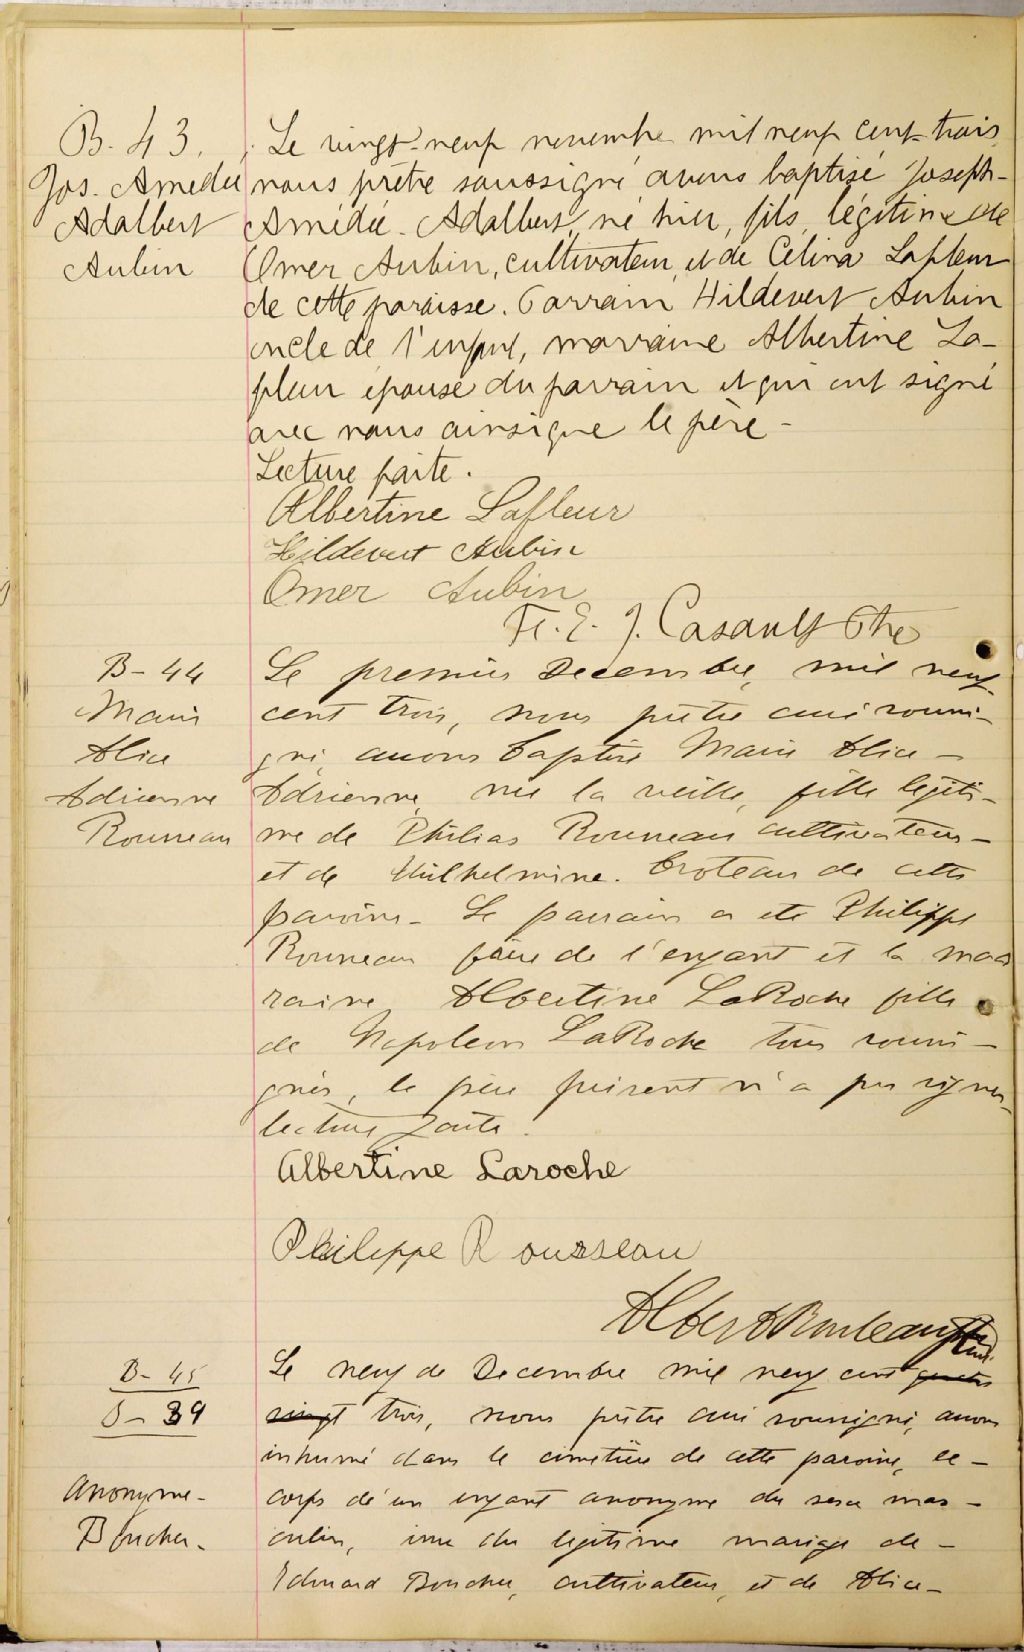 B. 43.
Jos. Amédée
Adalbert
Aubin
Le vingt-neuf novembre mil neuf cent-trois
nous prêtre soussigné avons baptisé Joseph-
Amédée Adalbert, né hier, fils légitime de
Omer Aubin, cultivateur et de Celina Lafleur
de cette paroisse. Parrain Hildevert Aubin
oncle de l'enfant, marraine Albertine La-
fleur épouse du parrain et qui ont signé
avec nous ainsi que le père -
Lecture faite.
Albertine Lafleur
Hildevert Aubin
Omer Aubin
F. E. J. Casault Ptre
B - 44
Marie
Alice
Adrienne
Rousseau
Le premier Decembre, mil neuf
cent trois, nous prêtre curé soussi-
gné, avons baptisé Marie Alice -
Adrienne, née la veille, fille légiti-
me de Philias Rousseau cultivateur -
et de Wilhelmine. Croteau de cette
paroisse - Le parrain a été Philippe
Rousseau frère de l'enfant et la mar
raine Albertine LaRoche fille
de Napoleon LaRoche tous soussi -
gnés, le père présent n'a pu signer,
lecture faite.
Albertine Laroche
Philippe Rousseau
Albert Rouleau Ptre
curé
B - 45
S - 39
Anonyme -
Boucher -
Le neuf de Decembre mil neuf cent quatre
vingt trois, nous prêtre curé soussigné, avons
inhumé dans le cimetière de cette paroisse, le -
corps d'un enfant anonyme du sexe mas -
culin, issu du légitime mariage de -
Edouard Boucher, cultivateur, et de Alice -